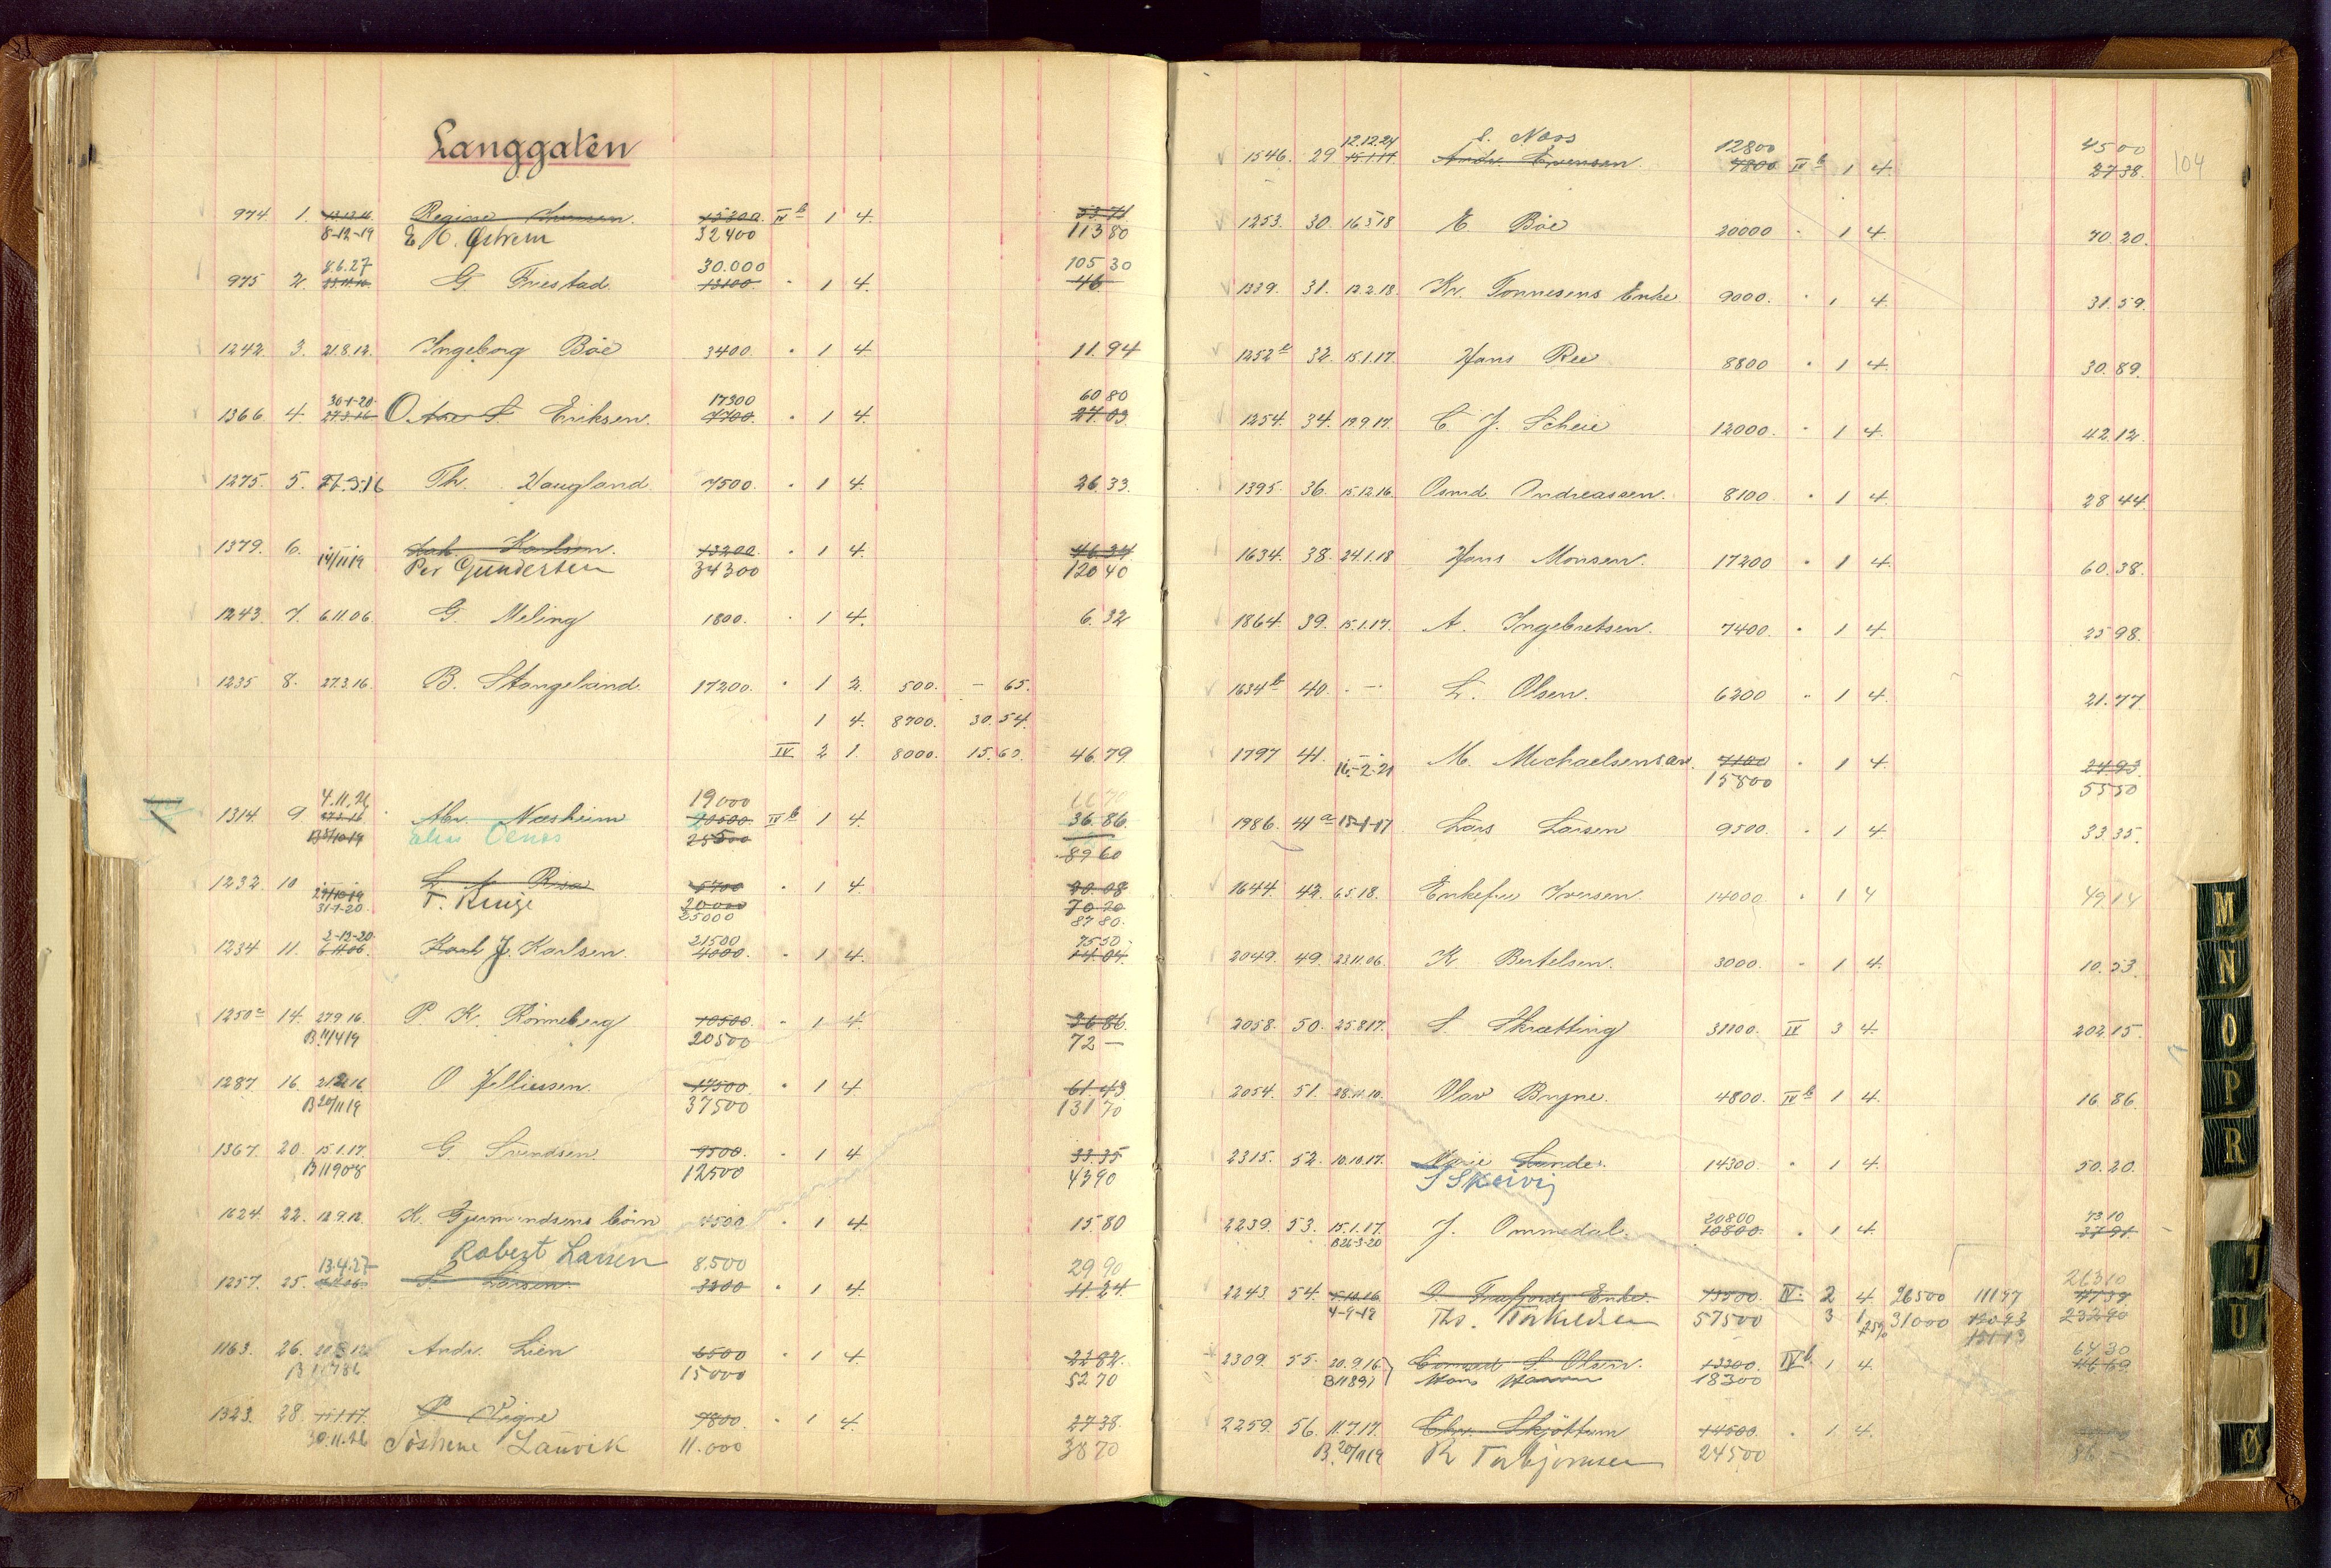 Langgaten
974 1. 13.12.16 Regine Iversen. 15300. IV b 1 4. 53.71
8-12-19 E. O. Østrem 32400 113 80
8.6.27 30.000 105 30
975 2. G. Friestad 13100 " 1 4. 46
1242 3. 21.8.12. Ingeborg Böe 3400. " 1 4 11.94
30-1-20 17300 60 80
1366 4. 27.3.16 O. Eriksen. 7700. " 1 4. 27.03
1275. 5. 27.3.16 Th. Haugland. 7500. " 1 4. 26.33.
1379. 6. Jak. Karlsen. 13200. " 1 4. 46.34
14/11 19 Per Gundersen 34300 120 40
1243. 7. 6.11.06 G. Meling 1800. " 1 4. 6.32
1235 8. 27.3.16 B. Stangeland. 17200. " 1 2. 500. – 65.
1 4. 8700. 30.54.
IV 2 1. 8000. 15.60. 46.79
4.11.26 19000 66 70
1314. 9 27.3.16 Næsheim 10500 IV b 1 4. 36.86.
B 31/10 19 Elias Oenes 25500 89 60
1232. 10 L. A. Risa 5700 " 1 4 20.08
29/10 19 T. Ringe 20000 70 20
31-1-20. 25000 87 80.
2-12-20. 21500 75 50
1234 11. 6.11.06. Karl J. Karlsen. 4000. " 1 4. 14.04.
1250 a 14. 27.9.16 P. K. Rönneberg 10500. " 1 4. 36.86.
B 11/4 19 20500 72 —
1287. 16. 21.2.16 O. Jelliussen. 17500. " 1 4. 61.43
B 20/11 19 37500 131 70
1367. 20. 15.1.17. G. Svendsen. 9500. " 1 4 33.35
B 11908 12500 43 90
1624. 22. 12.9.12. K. Gjermundsens börn 4500 " 1 4. 15.80
13.4.27 Robert Larsen 8.500 29 90
1257. 25. L. Larsen. 3200 " 1 4. 11.24.
1163. 26. 20.8.12 Andr. Lien 6500 " 1 4. 22.82.
B 11786 15000 52 70
1323. 28. 15.1.17. P. Vigre 7800. " 1 4. 27.38.
30.11.26 Jöstrene Lauvik 11.000 38 70
104
12.12.24 S. Næss 12800 45 00
1546. 29. 15.1.17. Andr. Evensen. 7800 IV b 1 4. 27.38.
1253. 30. 16.5.18 E. Böe 20000 " 1 4. 70.20.
1339. 31. 12.2.18. Kr. Tönnesens Enke 9000. " 1 4. 31.59.
1252 b 32. 15.1.17. Hans Ree 8800 " 1 4. 30.89.
1254. 34. 12.9.17. C. J. Scheie 12000. " 1 4. 42.12.
1395. 36. 15.12.16. Osmd. Andreassen. 8100. " 1 4. 28.44.
1634. 38. 24.1.18 Hans Monsen. 17200 " 1 4. 60.38.
1864. 39. 15.1.17. A. Ingebretsen. 7400. " 1 4. 25.98.
1634 b 40. " — L. Olsen. 6200 " 1 4. 21.77.
1797 41. M. Michaelsen 7100 " 1 4. 24.93.
16-2-21 15800 55 50
1986. 41 a 15-1-17. Lars Larsen 9500. " 1 4. 33.35.
1644. 42. 6.5.18. Enkefru Iversen. 14000. " 1 4 49.14
2049. 49. 23.11.06. K. Bertelsen. 3000. " 1 4. 10.53.
2058. 50. 25.8.17. S. Skrætting 31100. IV 3 4. 202.15.
2054. 51. 28.11.10. Olav Bryne. 4800. IV b 1 4. 16.86.
2315. 52. 10.10.17. Marie Lunde. 14300. " 1 4. 50.20.
S Skeivig
20800 73 10
2239. 53. 15.1.17. J. Ommedal. 10800. " 1 4. 37.91.
B 26-3-20
263 10
2243. 54. Enke. 13500. IV. 2 4. 26500 111 97 47.39
4-9-19 Ths. Torkildsen 57500 3 1 31000 232 90
25% 151 13
64 30
2309. 55. 20.9.16 Conrad S. Olsen. 13300. IV b 1 4. 46.69
B 11891 Hans Hansen 18300
2259. 56. 11.7.17. Chr. Skjöttum 14500. " 1 4.
B. 20/11 19 R Torbjørnsen 24500 86 —
M
N
O
P
R
J
U
Ø